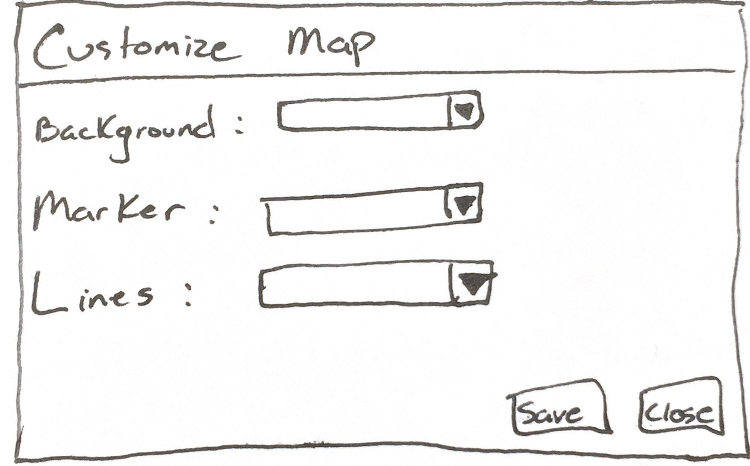 Customize Map
Background :
Marker :
Lines :
Save Close